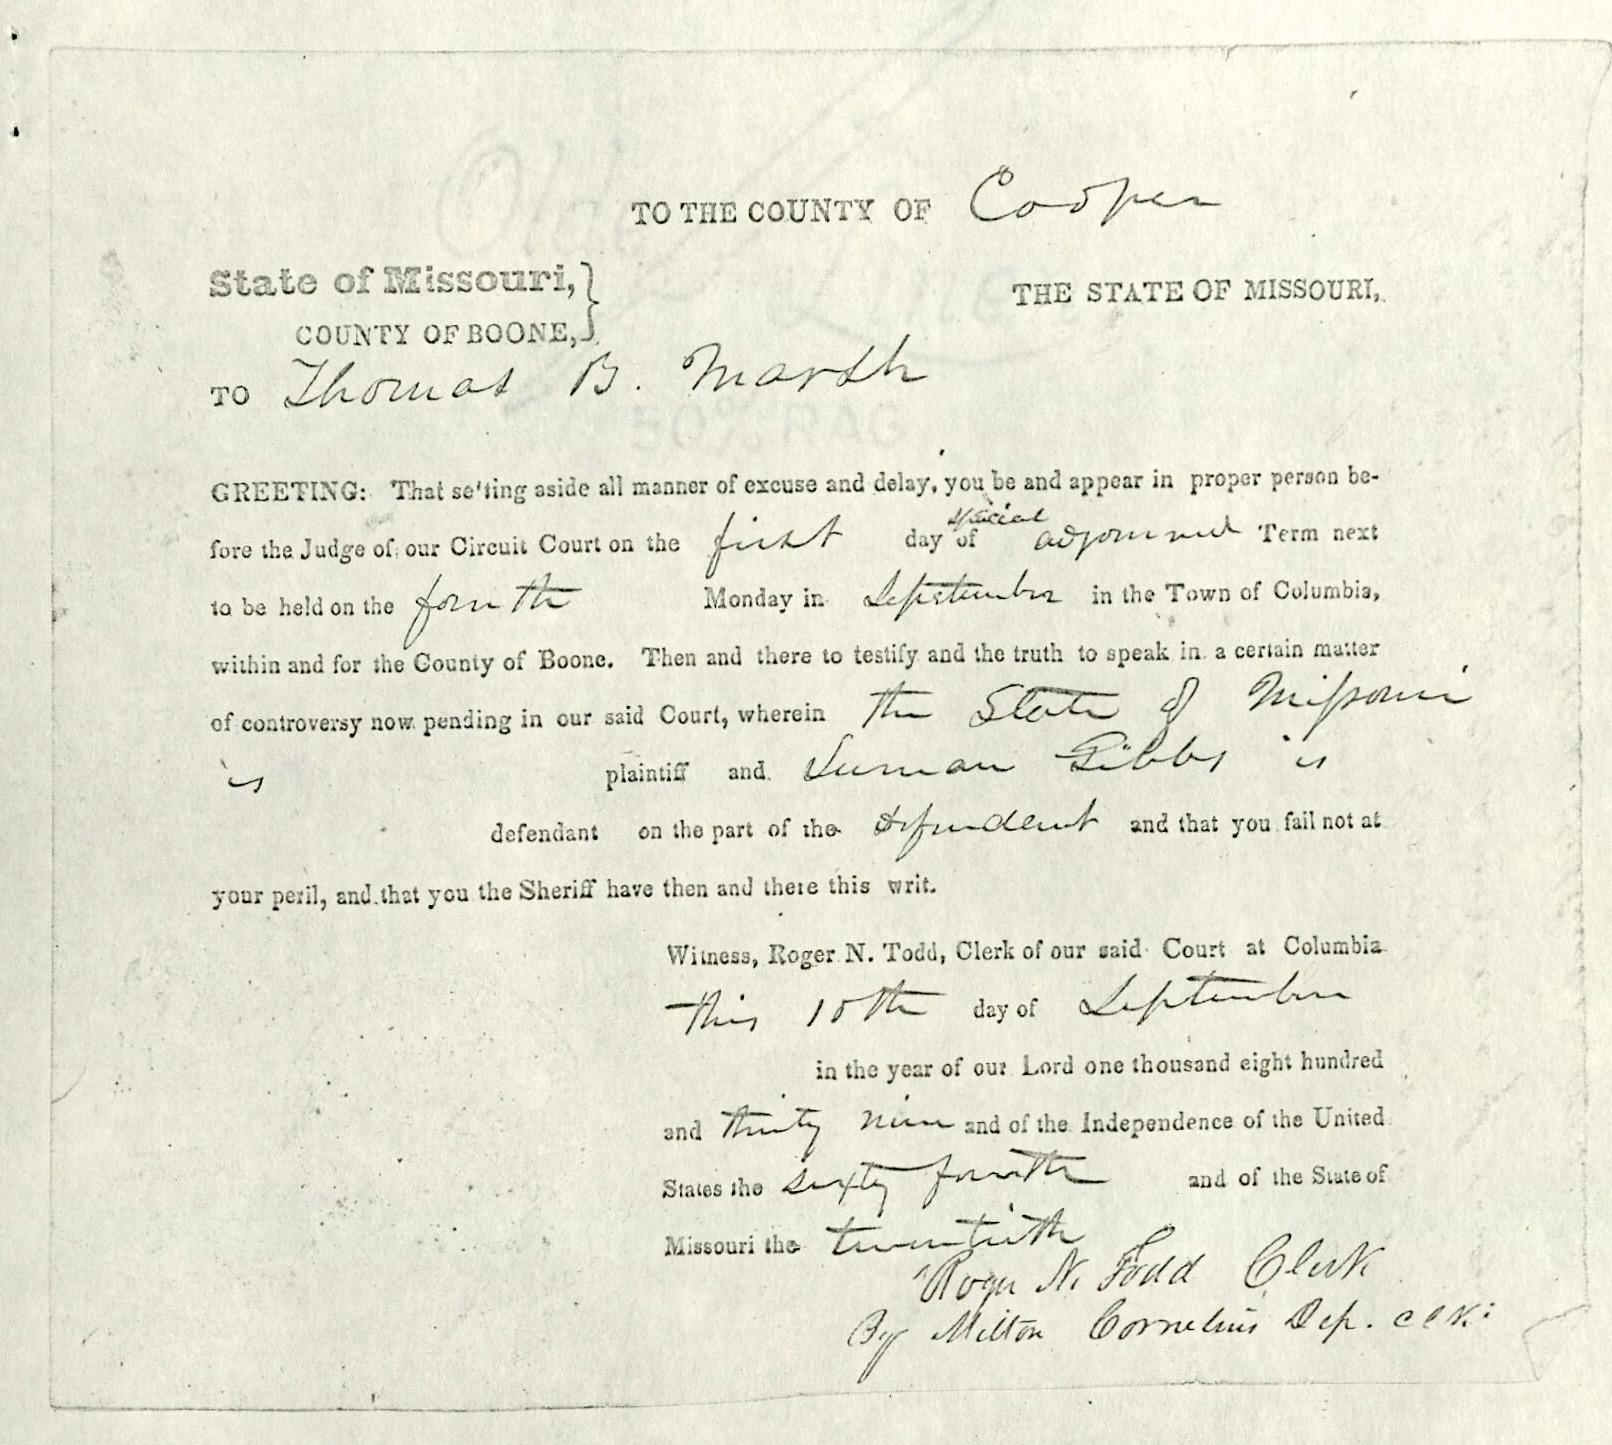 TO THE COUNTY OF Cooper
State of Missouri,}
THE STATE OF MISSOURI,
COUNTY OF BOONE,}
TO Thomas B. Marsh
GREETING: That setting aside all manner of excuse and delay, you be and appear in proper person be-
fore the Judge of our Circuit Court on the first day of special adjourned Term next
to be held on the fourth Monday in September in the Town of Columbia,
within and for the County of Boone. Then and there to testify and the truth to speak in a certain matter
of controversy now pending in our said Court, wherein the State of Missouri
is plaintiff and Luman Gibbs is
defendant on the part of the defendent and that you fail not at
your peril, and that you the Sheriff have then and there this writ.
Witness, Roger N. Todd, Clerk of our said Court at Columbia
this 10th day of September
in the year of our Lord one thousand eight hundred
and thirty nine and of the Independence of the United
States the sixty fourth and of the State of
Missouri the twentieth
Roger N. Todd Clerk
By Milton Cornelius Dep. Clk: